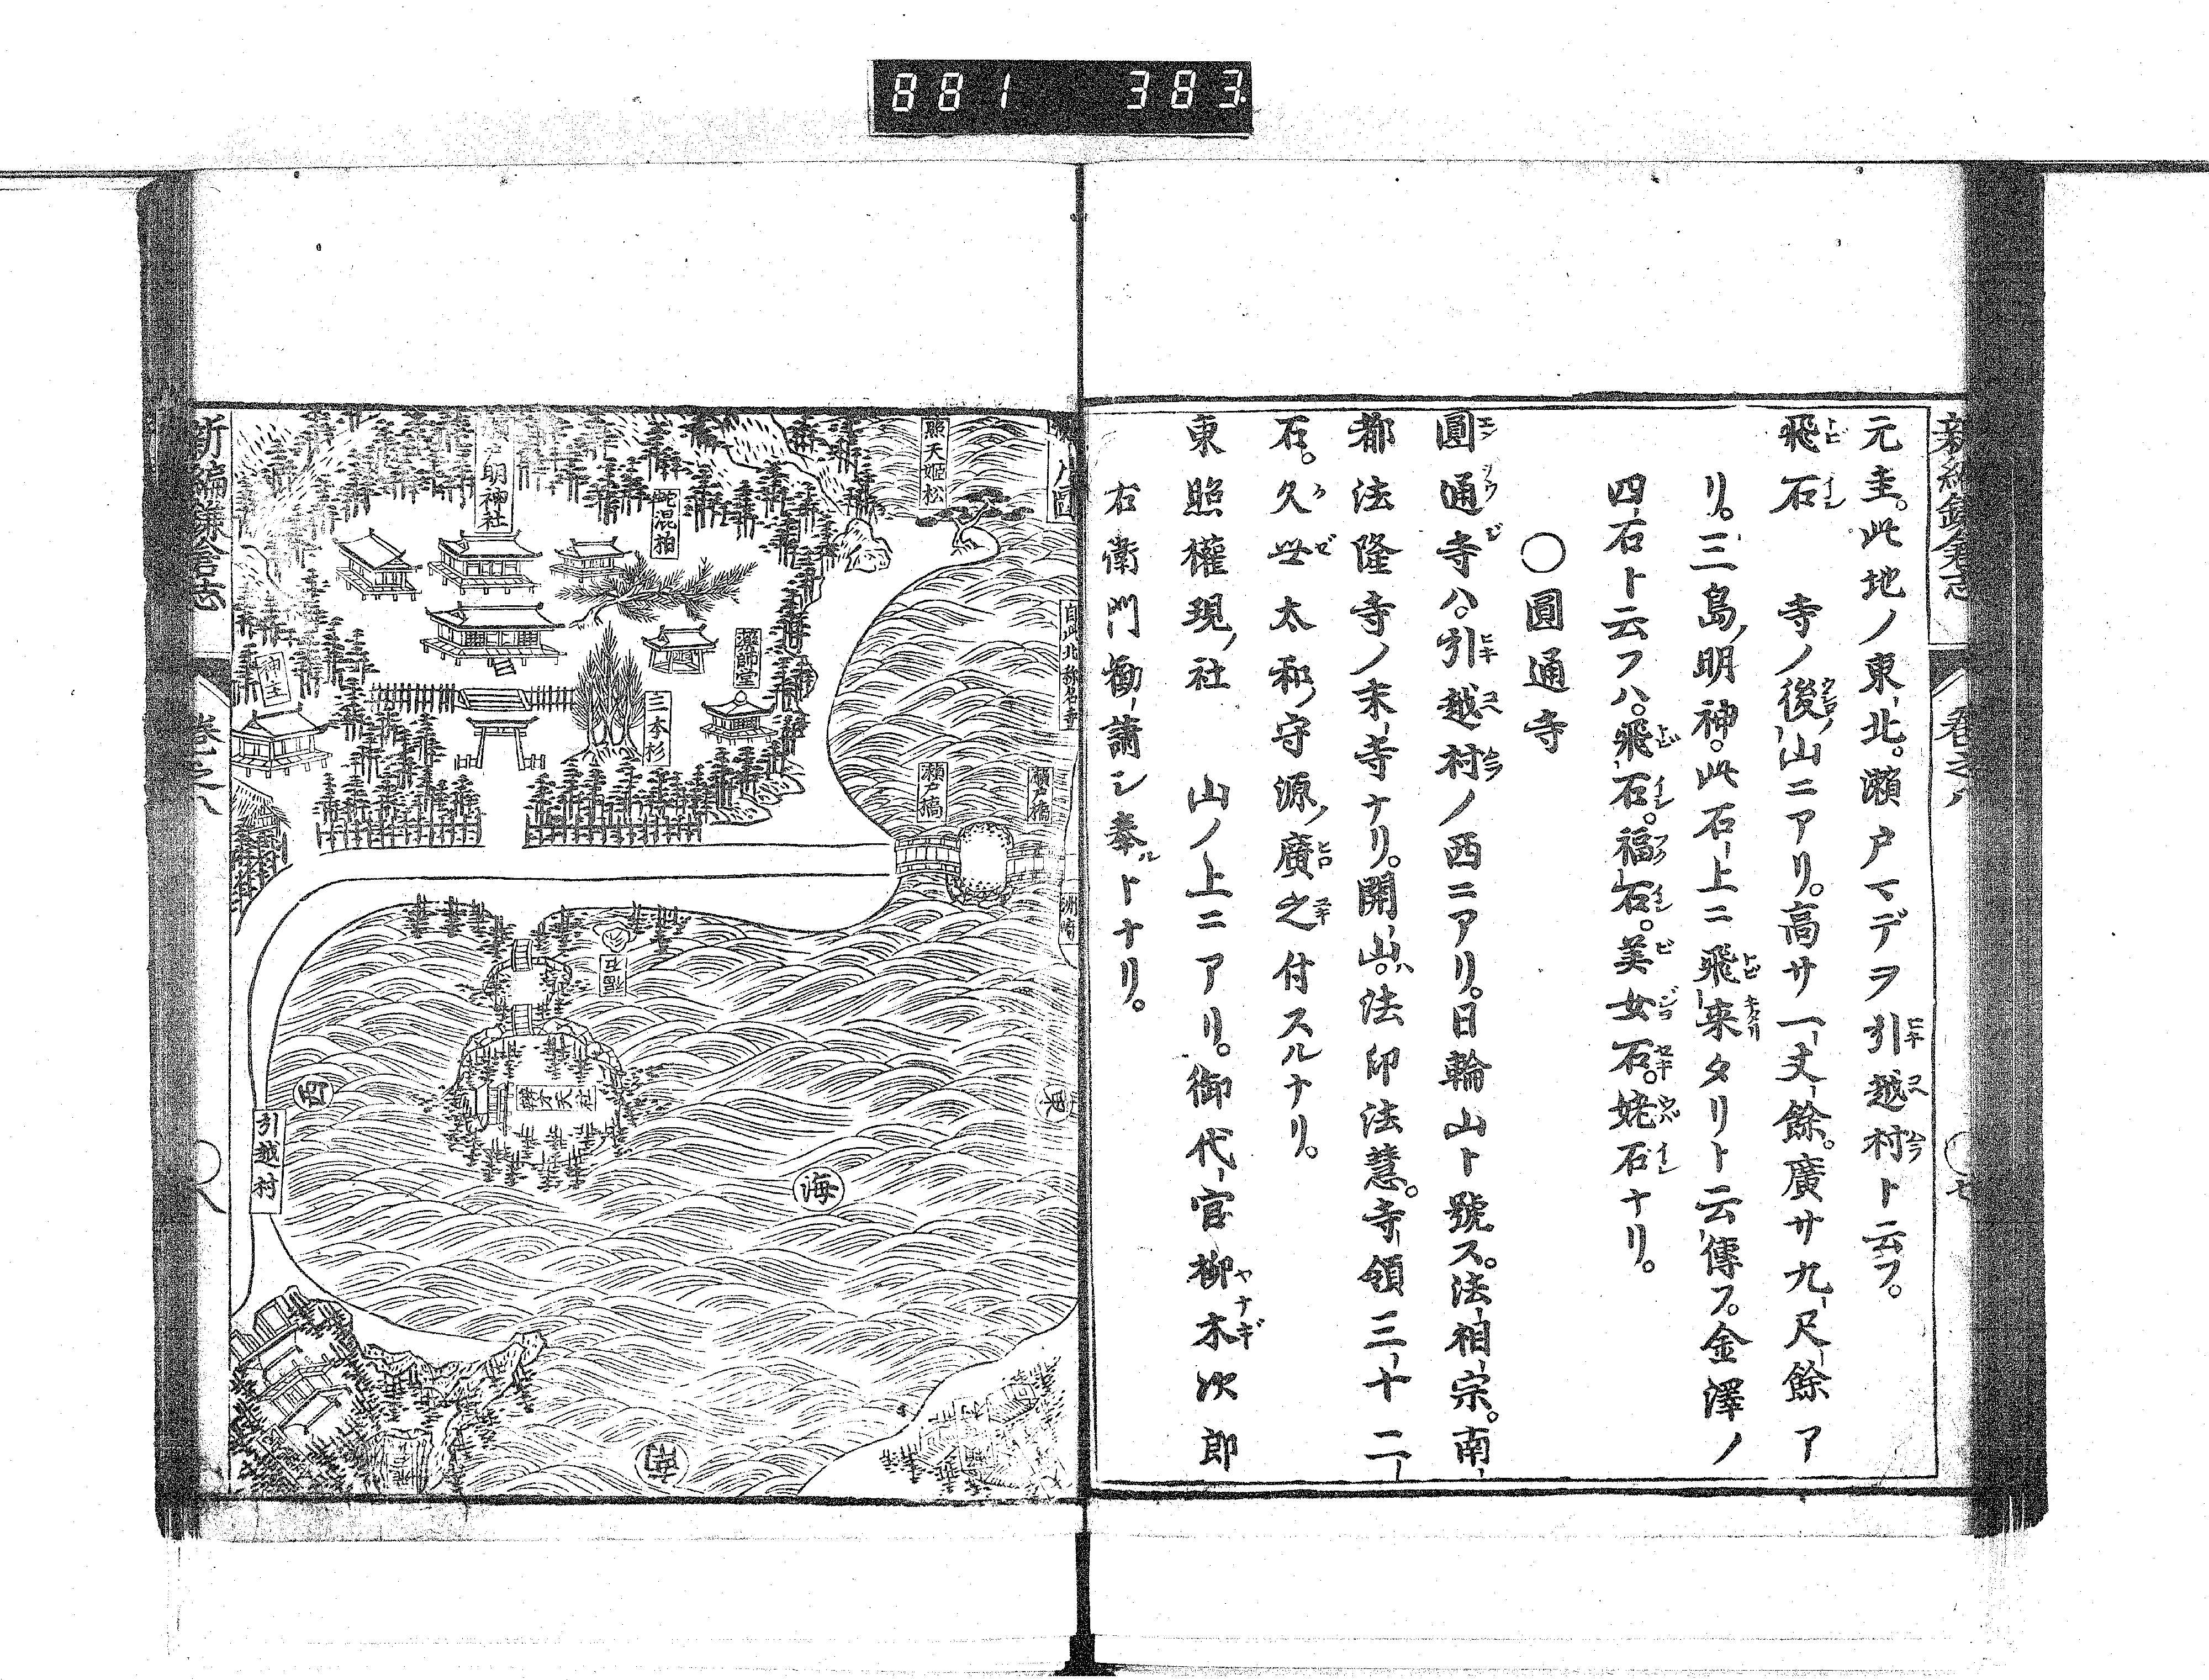 881 383
新編鎌倉志 卷之八
元主。此地ノ東北。瀬戸マデヲ引越村ト云フ。
飛石 寺ノ後山ニアリ。高サ一丈餘。廣サ九尺餘ア
リ。三島明神。此石上ニ飛来タリト云傳フ。金澤ノ
四石ト云フハ。飛石。福石。美女石。姥石ナリ。
〇圓通寺
圓通寺ハ。引越村ノ西ニアリ。日輪山ト號ス。法相宗。南
都法隆寺ノ末寺ナリ。開山ハ。法印法慧。寺領三十二
石。久世太和守源廣之付スルナリ。
東照權現社 山ノ上ニアリ。御代官柳木次郎
右衛門勸請シ奉ルトナリ。
照天姫松
自此北称名寺
明神社
混柏
藥師堂
三本杉
神主
瀬戸橋
瀬戸橋
洲崎
福石
辨才天社
東
西
海
引越村
南
新編鎌倉志 卷之八 〇八